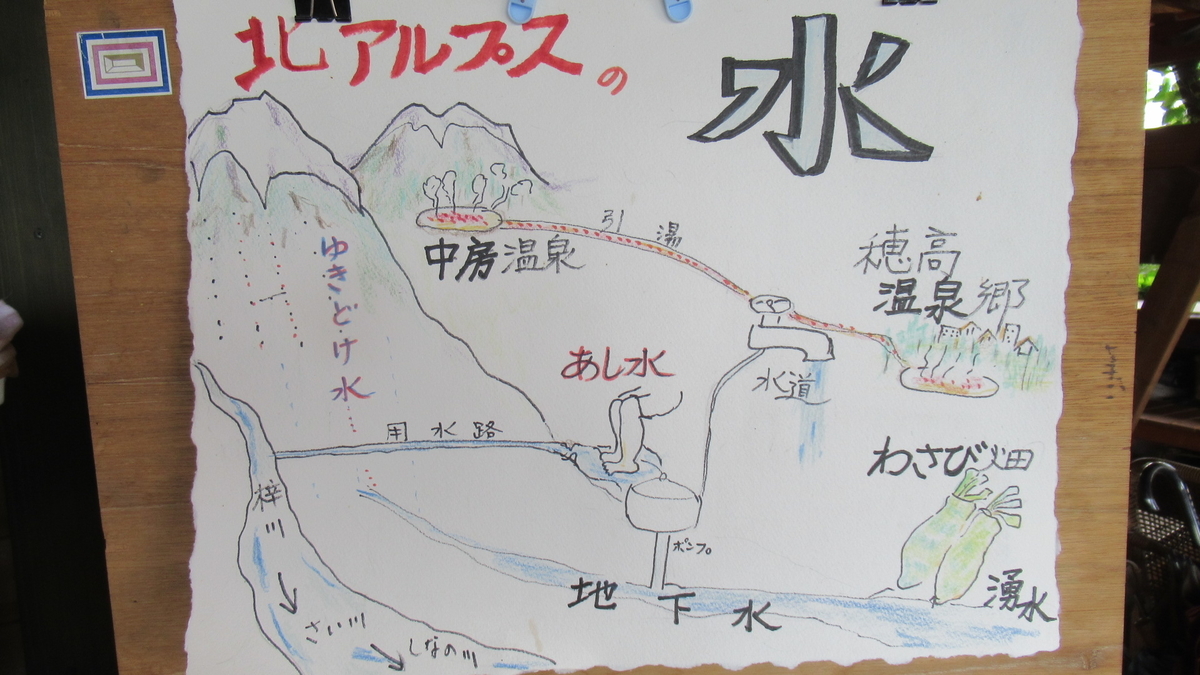 北アルプスの
水
引湯
中房温泉
穂高
温泉郷
ゆきどけ水
あし水
水道
用水路
わさび畑
梓川
ポンプ
地下水
湧水
さい川
しなの川